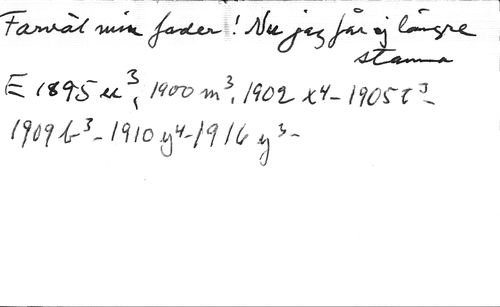 Farväl min fader! Nu jag får ej längre
stanna
E 1895 u³, 1900 m³, 1902 x⁴ - 1905 t³ -
1909 b³ - 1910 y⁴ - 1916 y³ -